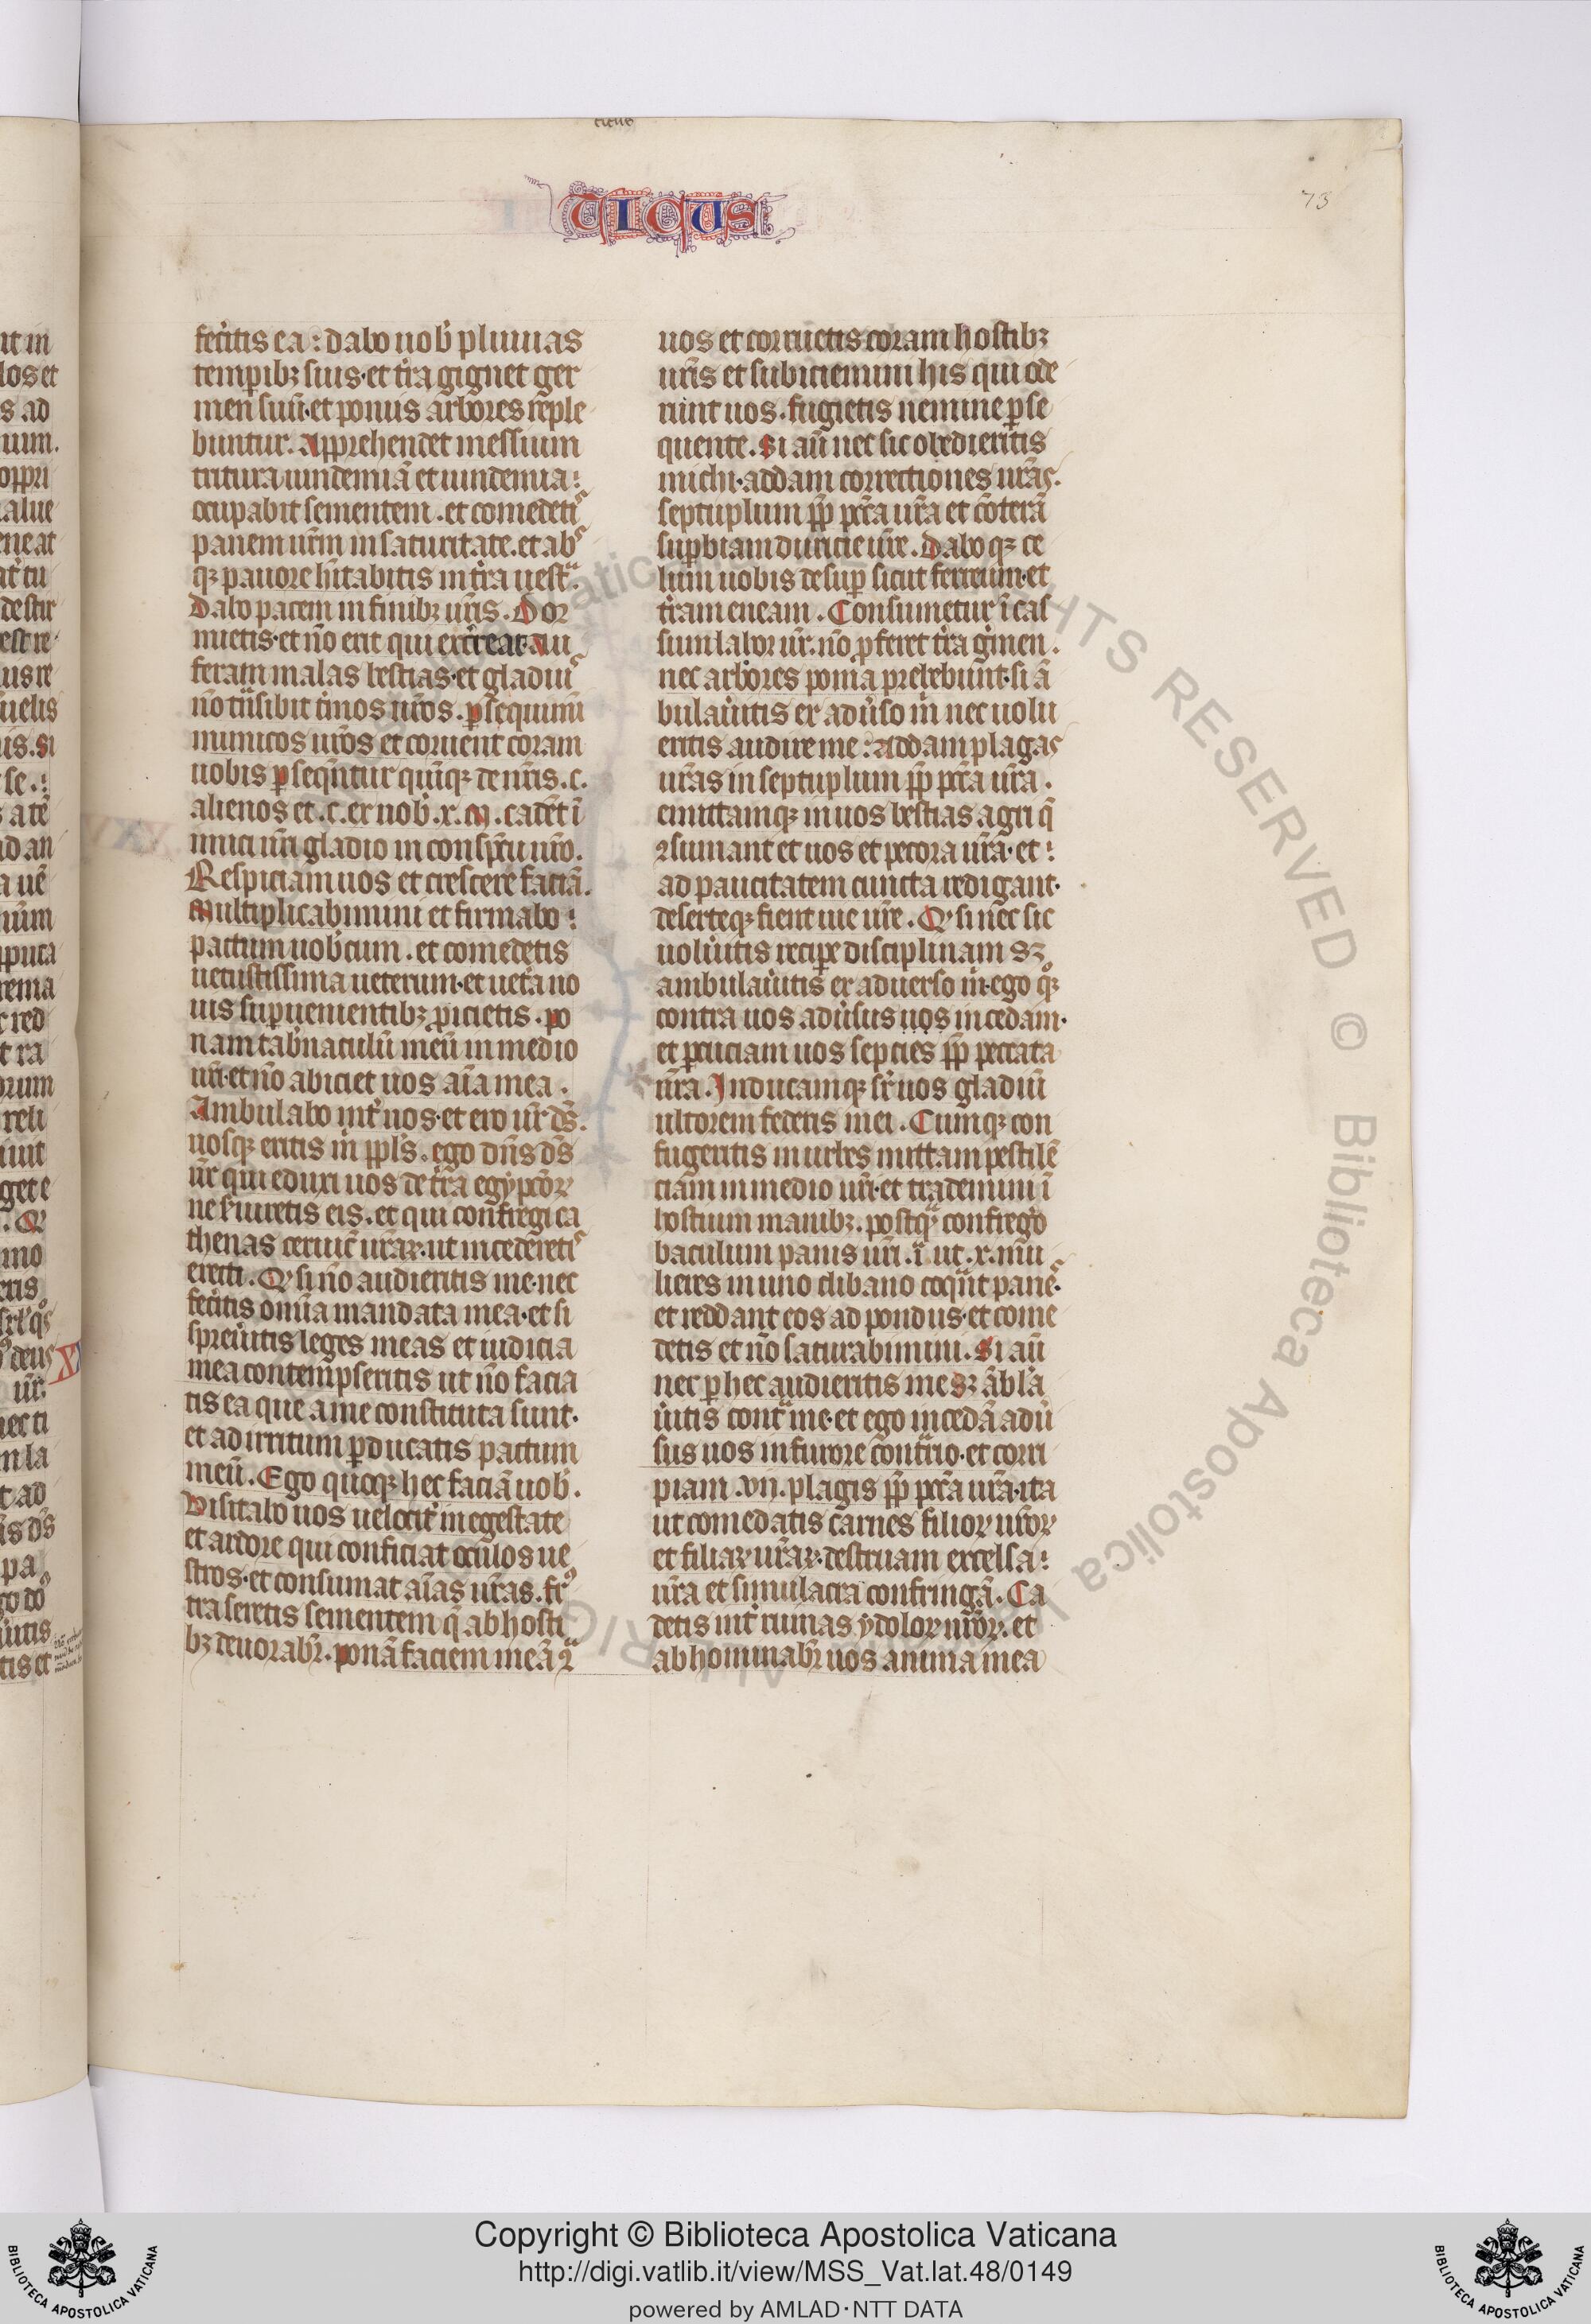 titus
TICUS
73
fec̓itis ea : dabo uob̓ pluuias
temp̱ibꝫ suis · et t̓ra gignet ger
men suū · et pomis arbores rēple
buntur . Apprehendet messium
tritura uindemiā et uindemia :
occupabit sementem . et comedetis
panem ur̄m in saturitate . et abs
qꝫ pauore hītabitis in t̓ra uestᵃ .
Dabo pacem in finibꝫ ur̄is . Dor
mietis · et nō erit qui exterreat · Au
feram malas bestias · et gladius
nō tᵃnsibit t̓minos ur̄os . ꝑsequimī
inimicos ur̄os et coruent coram
uobis ꝑseq̄ntur quīqꝫ de ur̄is . c .
alienos et . c . ex uob̓ . x . M . cadēt ī
imici ur̄i gladio in conspc̄tu ur̄o .
Respiciam uos et crescere faciā .
Multiplicabimini et firmabo :
pactum uob̓cum . et comedetis
uetustissima ueterum · et uet̓a no
uis suꝑuenientibꝫ ꝓicietis . po
nam tab̓naculū meū in medio
ur̄i · et nō abiciet uos aīa mea .
Ambulabo int̓ uos · et ero ur̄ ds̄ .
uosqꝫ eritis m̄ ppl̓s . ego dn̄s ds̄
ur̄ qui eduxi uos de t̓ra egyptioꝝ
ne s̓uiretis eis . et qui confregi ca
thenas ceruic̄ ur̄aꝝ · ut incederetis
erecti . Qͥ si nō audieritis me · nec
fec̓itis om̄ia mandata mea · et si
spreu̓itis leges meas et iudicia
mea contempseritis ut nō facia
tis ea que a me constituta sunt ·
et ad irritum ꝑducatis pactum
meū . Ego quoqꝫ hec faciā uob̓ .
Visitabo uos uelocit̓ in egestate
et ardore qui conficiat oculos ue
stros · et consumat aīas ur̄as . frꝰ
tra seretis sementem q̄ ab hosti
bꝫ deuorabr̄ . ponā faciem meā ꝯᵃ
uos et corruetis coram hostibꝫ
ur̄is et subiciemini his qui ode
rint uos . fugietis nemine ꝑse
quente . Si aū nec sic obedieritis
michi · addam correctiones ur̄as .
septuplum ꝓp̄ pcc̄a ur̄a et cōterā
suꝑbiam duricie ur̄e . Daboqꝫ ce
lum uobis desuꝑ sicut ferreum · et
t̓ram eneam . Consumetur ī cas
sum labor ur̄ · nō ꝓferet t̓ra g̓men .
nec arbores poma prebebunt · si ā
bulau̓itis ex adu̓so m̄ nec uolu
eritis audire me : Addam plagas
ur̄as in septuplum ꝓp̄ pcc̄a ur̄a .
emittamqꝫ in uos bestias agri q̄
ꝯsumant et uos et pecora ur̄a · et :
ad paucitatem cuncta redigant ·
deserteqꝫ fient uie ur̄e . Qͥ si nec sic
uolu̓itis reciꝑe disciplinam sꝫ
ambulau̓itis ex aduerso m̄ · ego qꝫ
contra uos adu̓sus uos incedam ·
et ꝑcuciam uos septies ꝓp̄ peccata
ur̄a . Inducamqꝫ sr̄ uos gladiū
ultorem federis mei . Cumqꝫ con
fugeritis in urbes mittam pestilē
ciam in medio ur̄i · et trademini ī
hostium manibꝫ . postqᵃ confrego
baculum panis ur̄i . ī ut . x . mu
lieres in uno clibano coquāt panes ·
et reddant eos ad pondus · et come
detis et nō saturabimini . Si aū
nec ꝑ hec audieritis me sꝫ ābla
u̓itis contᵃ me · et ego incedā adu̓
sus uos in furore contᵃrio · et corri
piam . vij . plagis ꝓp̄ pcc̄a ur̄a · ita
ut comedatis carnes filioꝝ ur̄oꝝ
et filiaꝝ ur̄aꝝ · destruam excelsa :
ur̄a et simulacra confringā . Ca
detis int̓ ruinas ydoloꝝ ur̄oꝝ . et
abhominabr̄ uos anima mea
Copyright © Biblioteca Apostolica Vaticana
http://digi.vatlib.it/view/MSS_Vat.lat.48/0149
powered by AMLAD·NTT DATA
BIBLIOTECA APOSTOLICA VATICANA
BIBLIOTECA APOSTOLICA VATICANA